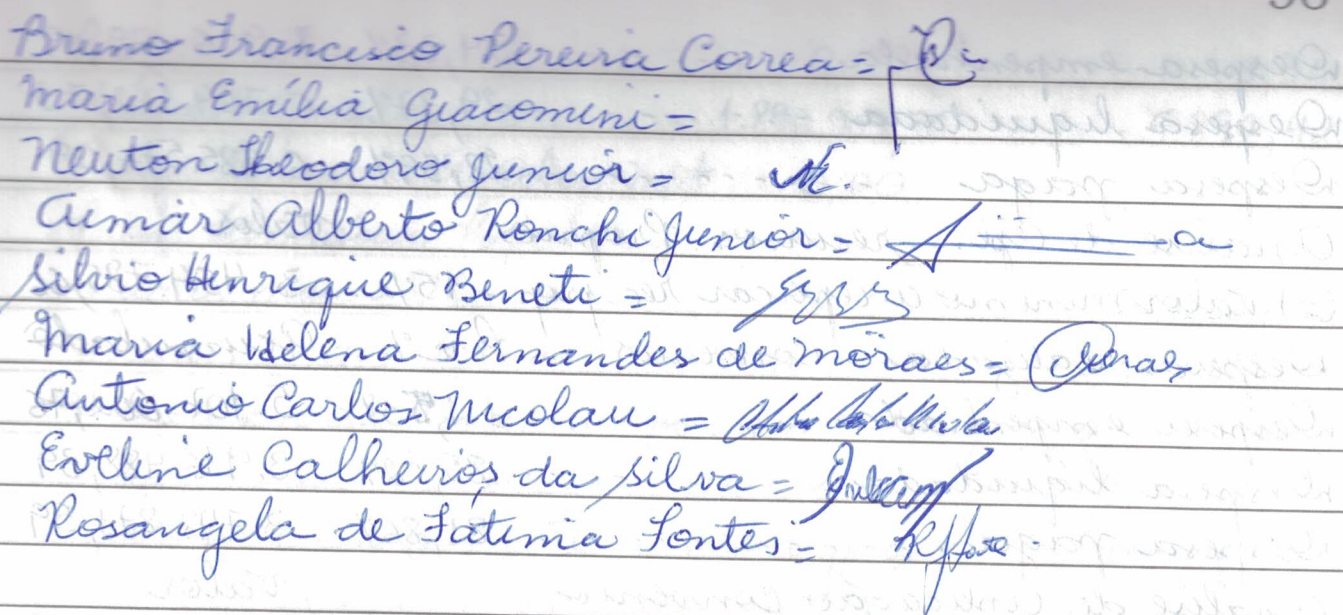 Bruno Francisco Pereira Correa =
Maria Emília Giacomini =
Newton Theodoro Junior =
Aimar Alberto Ronchi Junior =
Silvio Henrique Beneti =
Maria Helena Fernandes de Moraes =
Antonio Carlos Nicolau =
Eveline Calheiros da Silva =
Rosangela de Fátima Fontes =